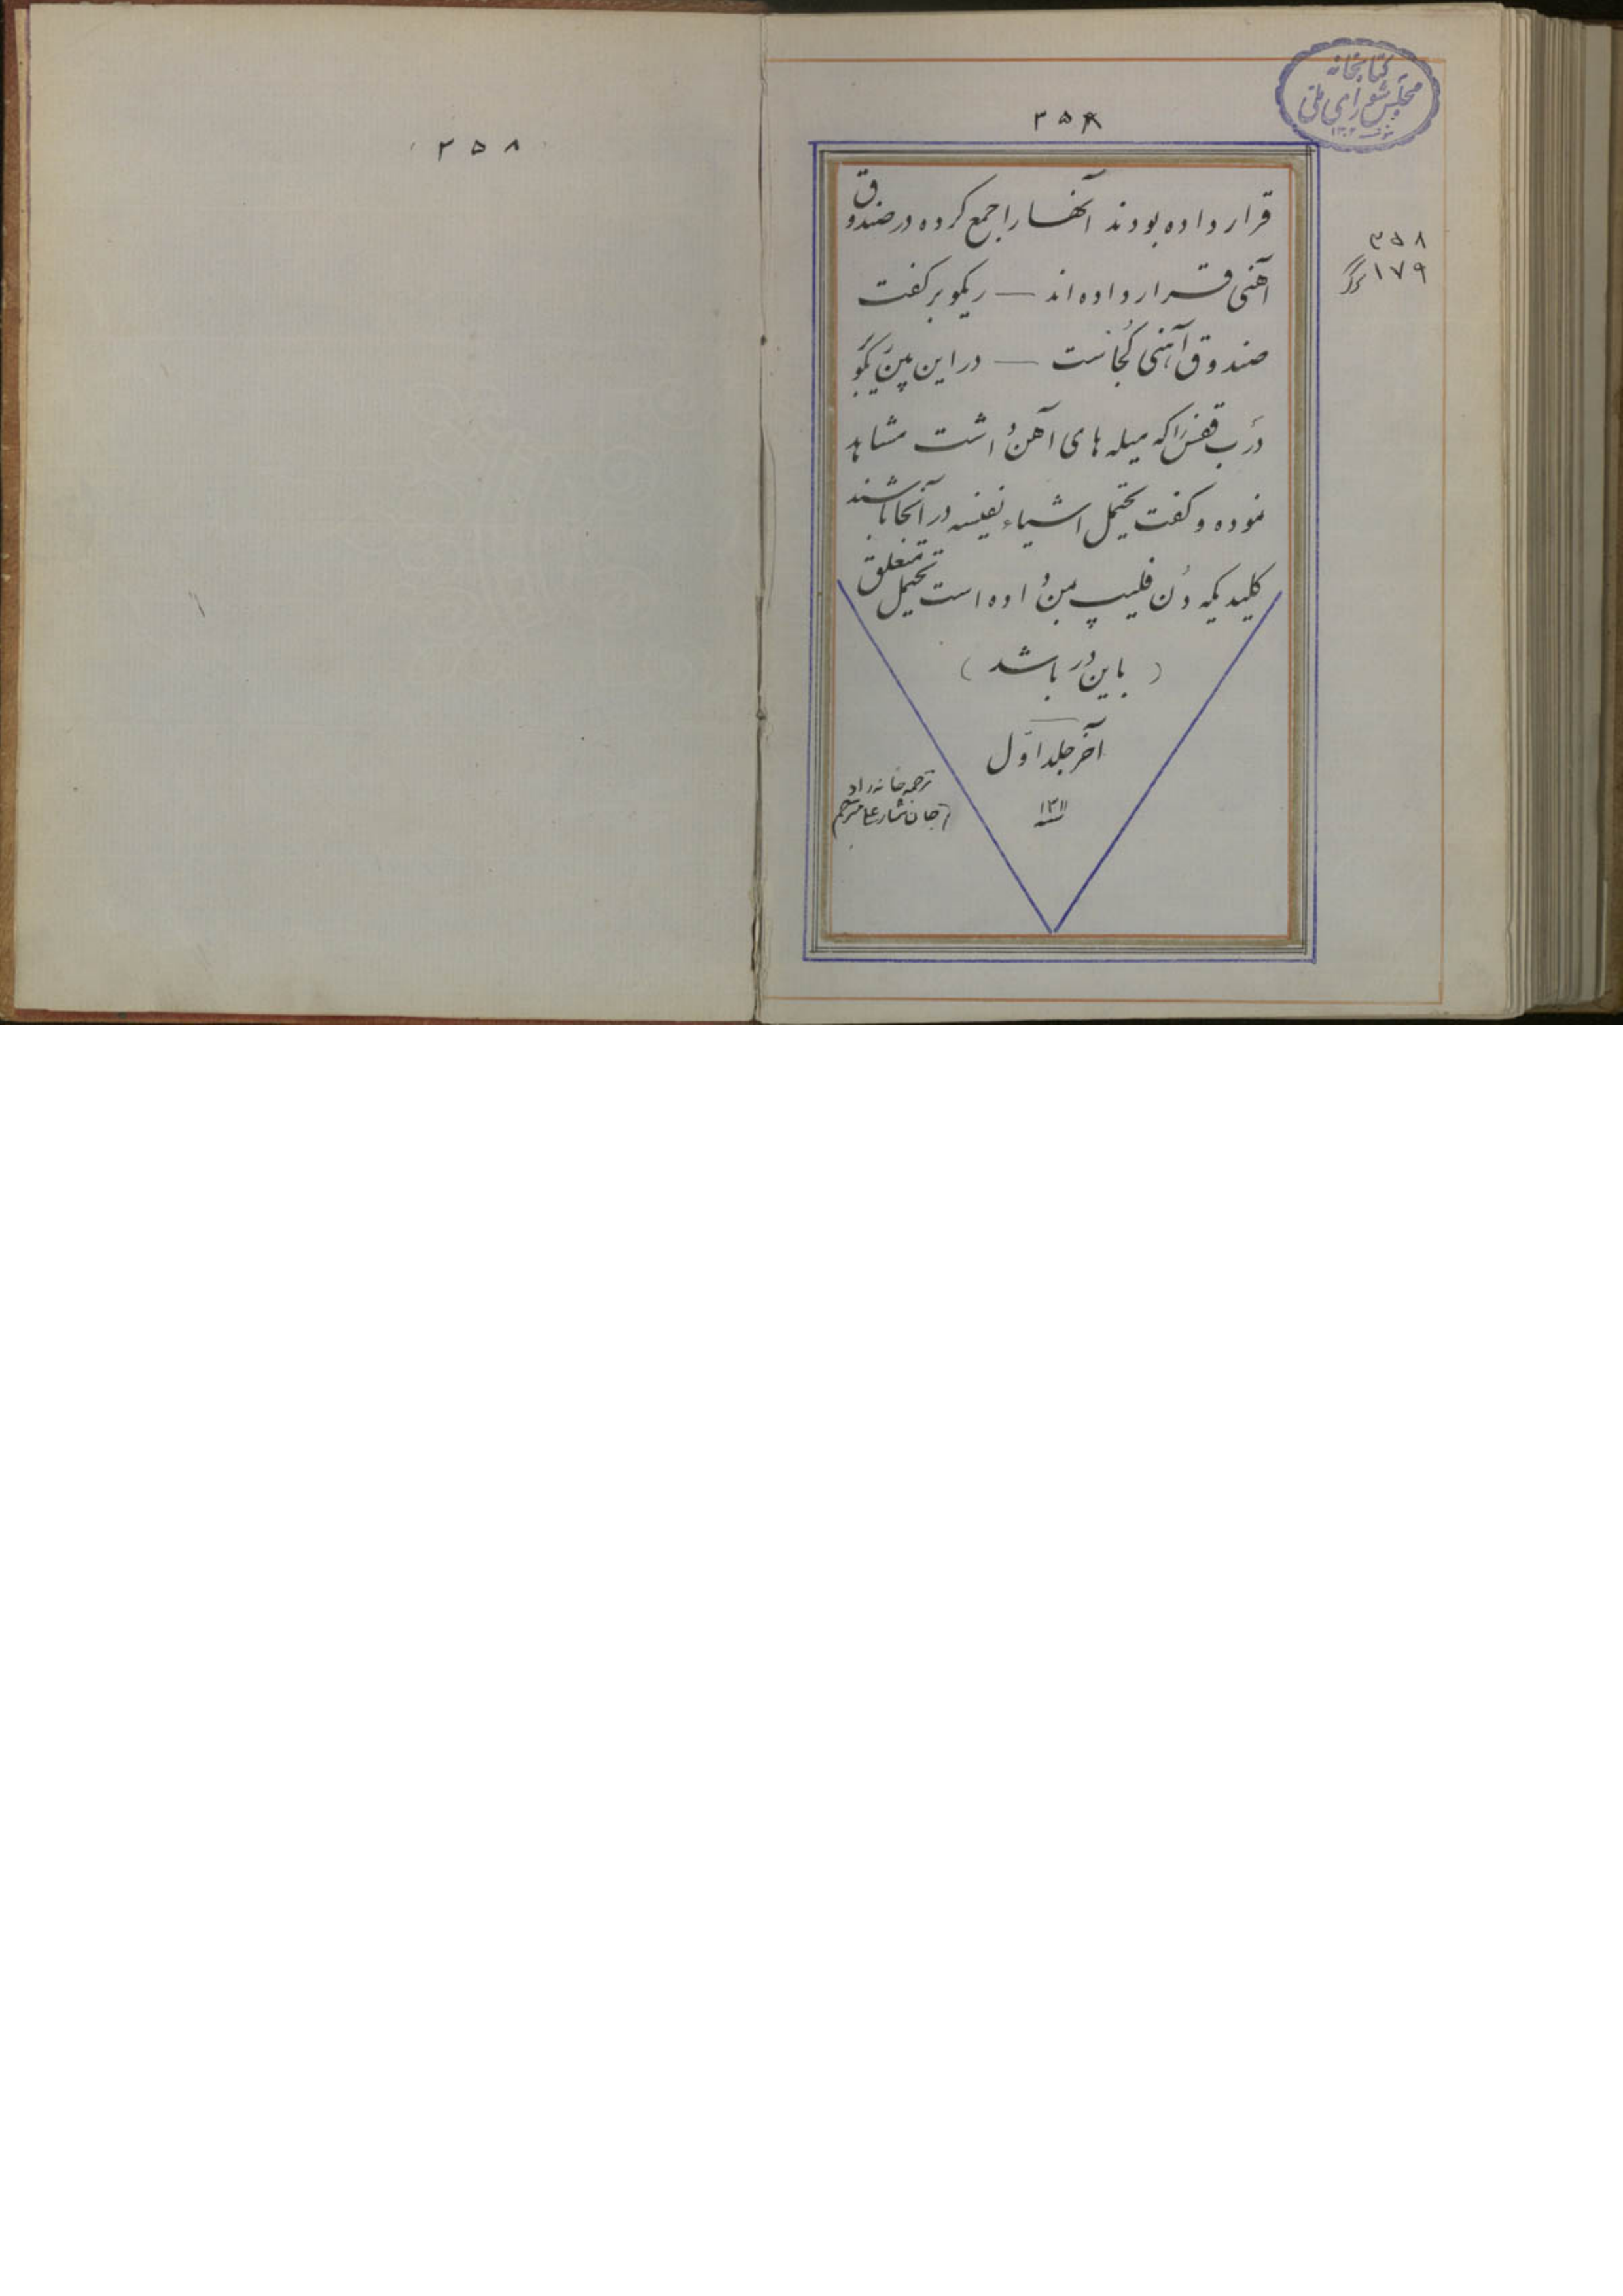 کتابخانه
مجلس شورای ملی
۱۳۰۲
۳۵۸
قرار داده بودند آنها را جمع کرده در صندوق
آهنی قرار داده‌اند — ریکو برکفت
صندوق آهنی کجاست — در این بین ریکو
درب قفس را که میله های آهن داشت مشاهد
نموده و گفت یحتمل اشیاء نفیسه در آنجا باشند
کلیدیکه دُن فلیپ بمن داده است یحتمل متعلق
( باین در باشد )
آخر جلد اوّل
سنه ۱۳۱۱
ترجمه خانه‌زاد
جان نثار علی مترجم
۳۵۸
۱۷۹ برگ
۳۵۸